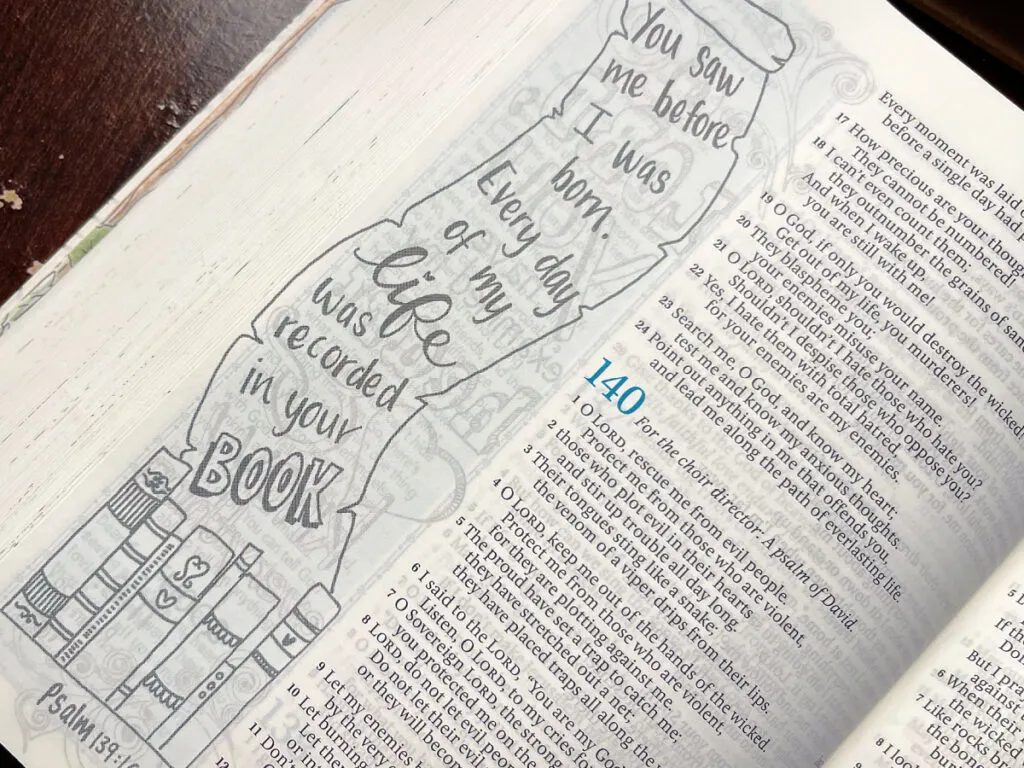 You saw
me before
I was
born.
Every day
of my
life
was
recorded
in your
BOOK
Psalm 139:1
Every moment was laid
before a single day had
17 How precious are your though
They cannot be numbered
18 I can't even count them;
they outnumber the grains of san
And when I wake up,
you are still with me!
19 O God, if only you would destroy the wicked
Get out of my life, you murderers!
20 They blaspheme you;
your enemies misuse your name.
21 O LORD, shouldn't I hate those who hate you?
Shouldn't I despise those who oppose you?
22 Yes, I hate them with total hatred,
for your enemies are my enemies.
23 Search me, O God, and know my heart;
test me and know my anxious thoughts.
24 Point out anything in me that offends you,
and lead me along the path of everlasting life.
140
For the choir director: A psalm of David.
1 O LORD, rescue me from evil people.
Protect me from those who are violent,
2 those who plot evil in their hearts
and stir up trouble all day long.
3 Their tongues sting like a snake;
the venom of a viper drips from their lips.
4 O LORD, keep me out of the hands of the wicked.
Protect me from those who are violent,
for they are plotting against me.
5 The proud have set a trap to catch me;
they have stretched out a net;
they have placed traps all along the
6 I said to the LORD, "You are my God
Listen, O LORD, to my cries for
7 O Sovereign LORD, the strong
you protected me on the
8 LORD, do not let evil peop
Do not let their evil
or they will becom
9 Let my enemies
by the very
10 Let burning
or let
11 Don't
12
5 L
If th
Do
But I pra
against
6 When the
the wicked
7 Like rocks br
the bone
8 I look